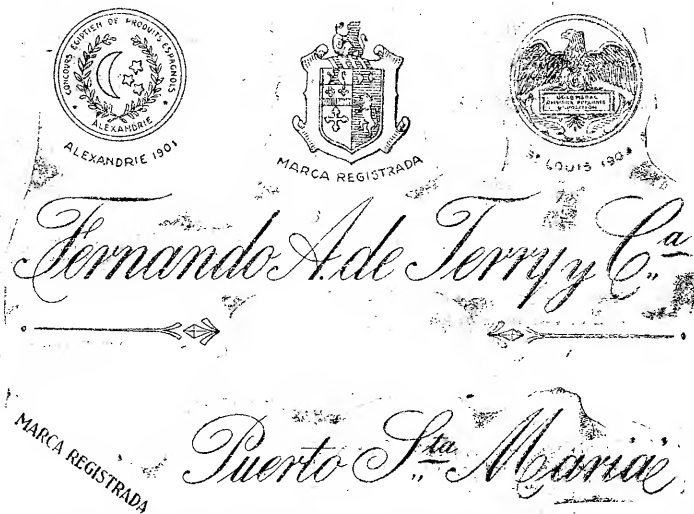 CONCOURS EGIPTIEN DE PRODUITS ESPAGNOLS
ALEXANDRIE
ALEXANDRIE 1901
MARCA REGISTRADA
St LOUIS 1904
Fernando A. de Terry y C.ª
MARCA REGISTRADA
Puerto S.ta Maria